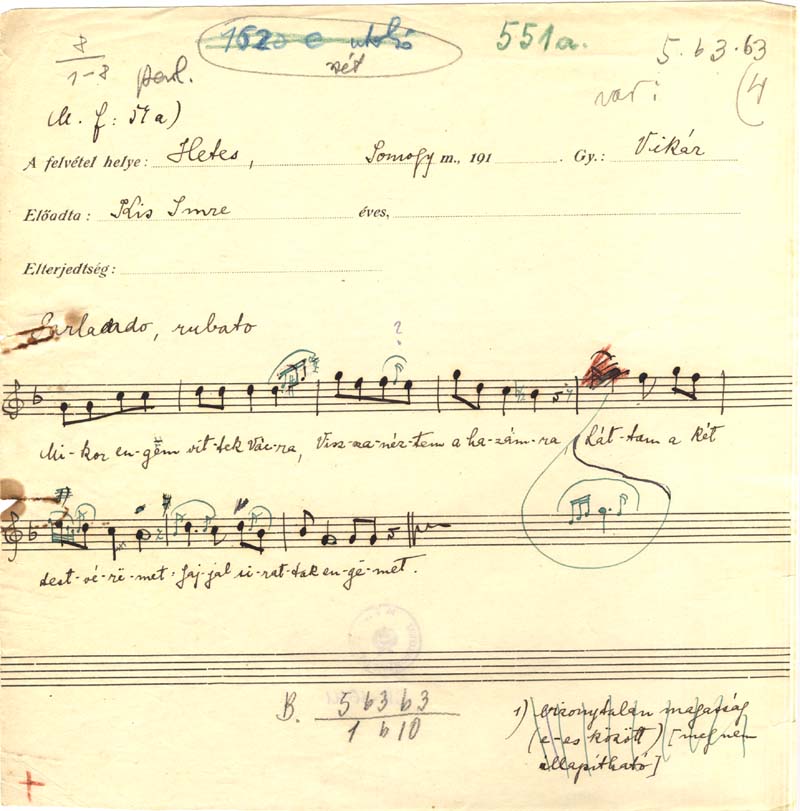 8
1-8
parl.
1620 e utolsó
rét
551a.
5·b3·b3
var:
(4
M. f: 51a)
A felvétel helye: Hetes, Somogy m., 191 Gy.: Vikár
Előadta: Kis Imre éves,
Elterjedtség:
Parlando, rubato
?
Mi-kor en-gëm vit-tek Vác-ra, Visz-sza-néz-tem a ha-zám-ra Lát-tam a két
test-vé-rë-met. Jaj-jal si-rat-tak en-gë-met.
B. 5 b3 b3
1 b10
1) bizonytalan magasság
(e-es között) [meg nem
állapítható]